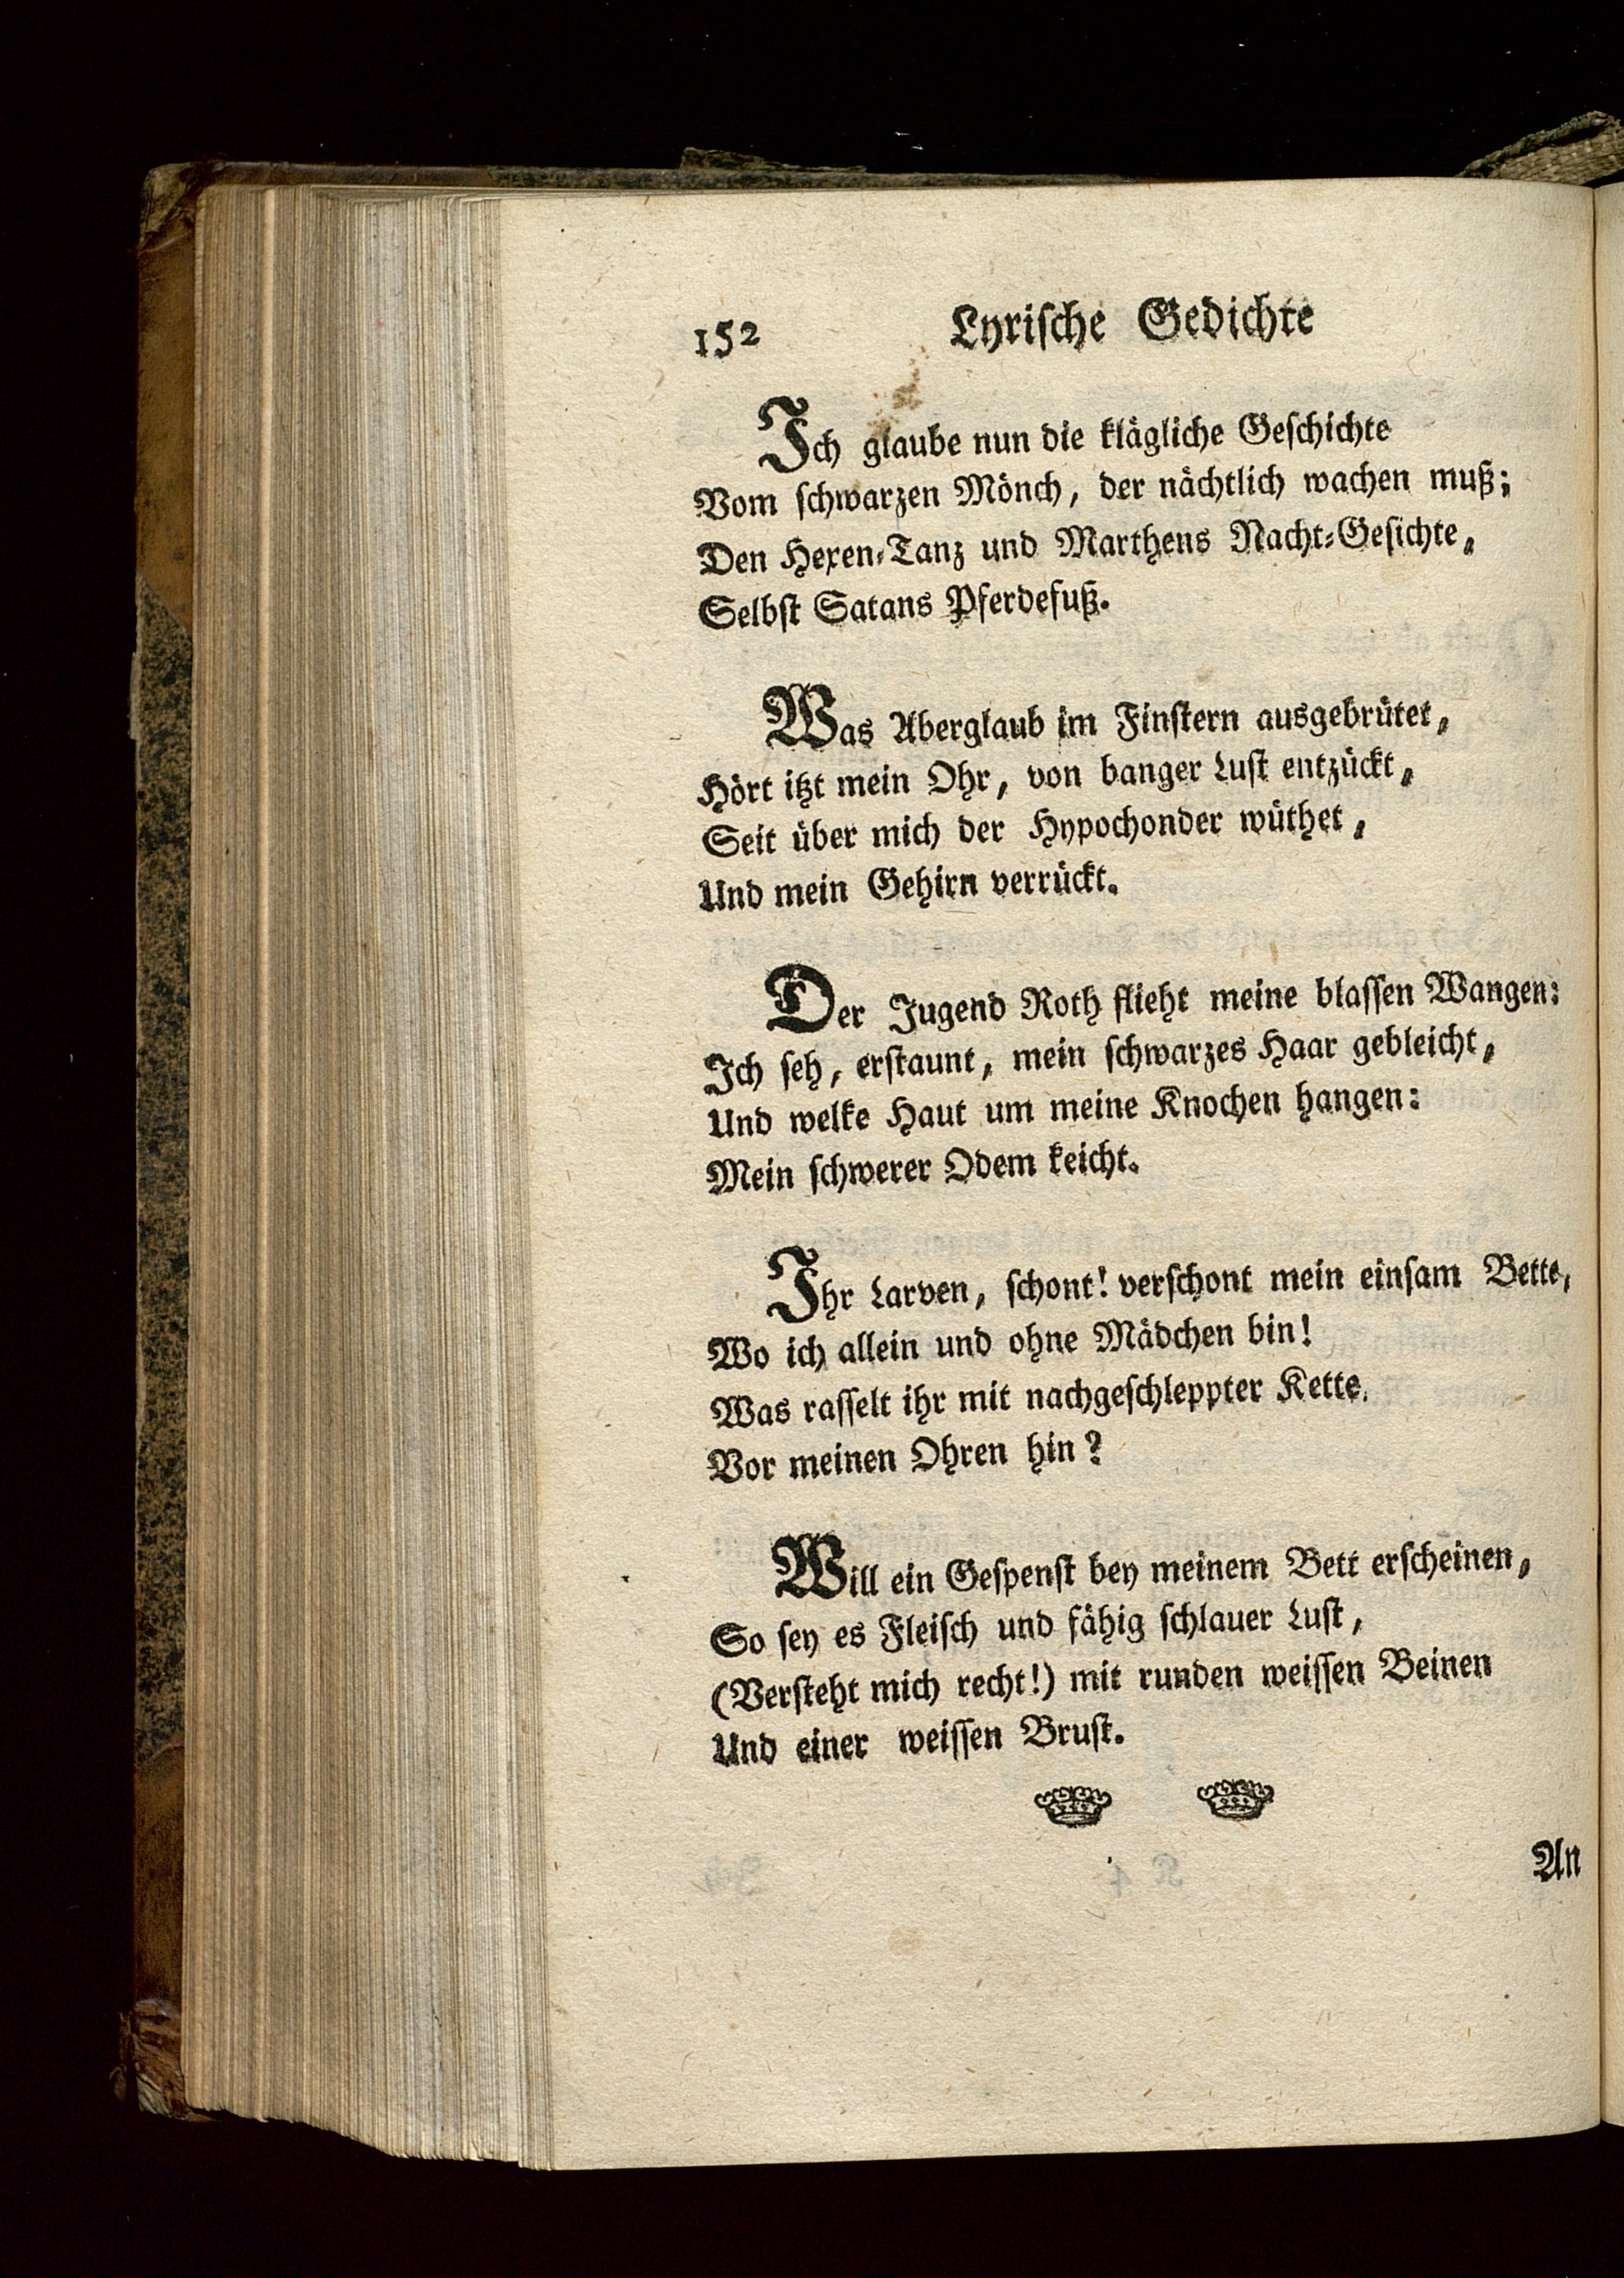 152 Lyrische Gedichte
Ich glaube nun die klägliche Geschichte
Vom schwarzen Mönch, der nächtlich wachen muß;
Den Hexen-Tanz und Marthens Nacht-Gesichte,
Selbst Satans Pferdefuß.
Was Aberglaub im Finstern ausgebrütet,
Hört itzt mein Ohr, von banger Lust entzückt,
Seit über mich der Hypochonder wüthet,
Und mein Gehirn verrückt.
Der Jugend Roth flieht meine blassen Wangen:
Ich seh, erstaunt, mein schwarzes Haar gebleicht,
Und welke Haut um meine Knochen hangen:
Mein schwerer Odem keicht.
Ihr Larven, schont! verschont mein einsam Bette,
Wo ich allein und ohne Mädchen bin!
Was rasselt ihr mit nachgeschleppter Kette
Vor meinen Ohren hin?
Will ein Gespenst bey meinem Bett erscheinen,
So sey es Fleisch und fähig schlauer Lust,
(Versteht mich recht!) mit runden weissen Beinen
Und einer weissen Brust.
An